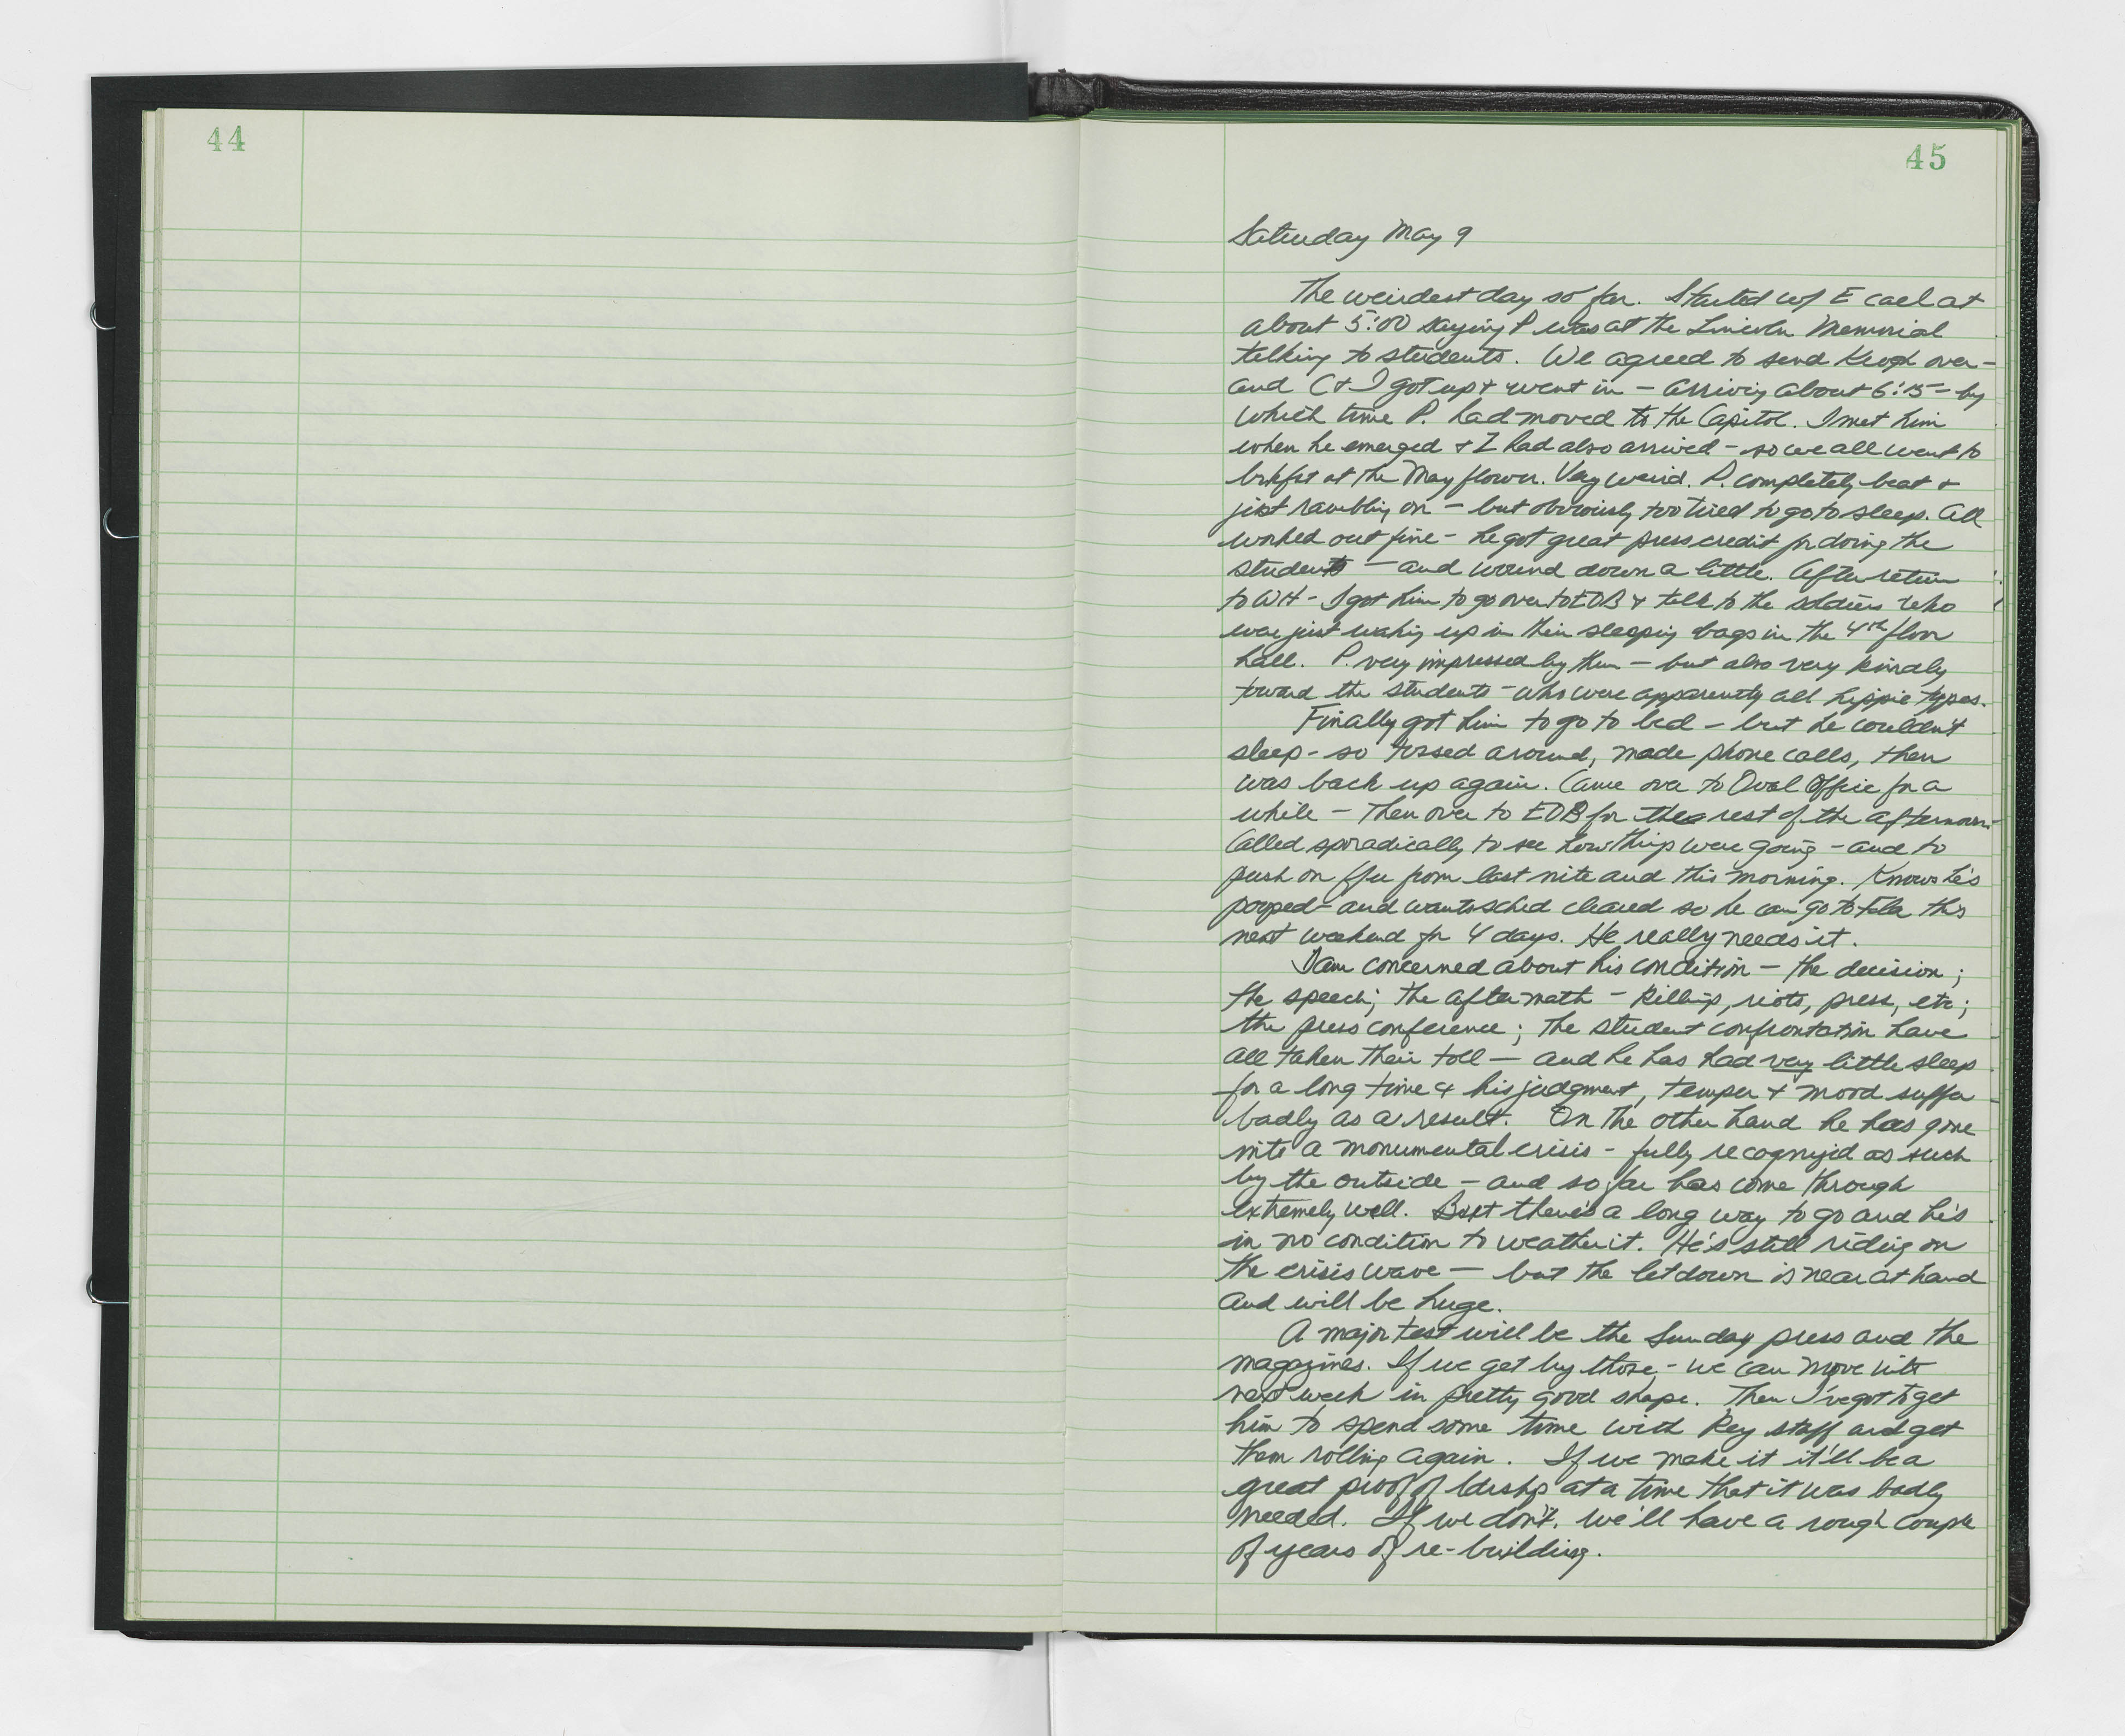 44
45
Saturday May 9
The weirdest day so far. Started w/ E call at
about 5:00 saying P was at the Lincoln Memorial
talking to students. We agreed to send Krogh over -
and C + I got up + went in - arriving about 6:15 - by
which time P. had moved to the Capitol. I met him
when he emerged + Z had also arrived - so we all went to
brkfst at the Mayflower. Very weird. P. completely beat +
just rambling on - but obviously too tired to go to sleep. All
worked out fine - he got great press credit for doing the
students - and wound down a little. After return
to WH - I got him to go over to EOB + talk to the soldiers who
were just waking up in their sleeping bags in the 4th floor
hall. P. very impressed by them - but also very kindly
toward the students - who were apparently all hippie types.
Finally got him to go to bed - but he couldn't
sleep - so tossed around, made phone calls, then
was back up again. Came over to Oval Office for a
while - then over to EOB for the rest of the afternoon -
Called sporadically to see how things were going - and to
push on ffu from last nite and this morning. Knows he's
pooped - and wants sched cleared so he can go to Fla this
next weekend for 4 days. He really needs it.
I am concerned about his condition - the decision;
the speech; the aftermath - killings, riots, press, etc;
the press conference; the student confrontation have
all taken their toll - and he has had very little sleep
for a long time + his judgment, temper + mood suffer
badly as a result. On the other hand he has gone
into a monumental crisis - fully recognized as such
by the outside - and so far has come through
extremely well. But there's a long way to go and he's
in no condition to weather it. He's still riding on
the crisis wave - but the letdown is near at hand
and will be huge.
A major test will be the Sunday press and the
magazines. If we get by those - we can move into
next week in pretty good shape. Then I've got to get
him to spend some time with key staff and get
them rolling again. If we make it it'll be a
great proof of ldrshp at a time that it was badly
needed. If we don't, we'll have a rough couple
of years of re-building.